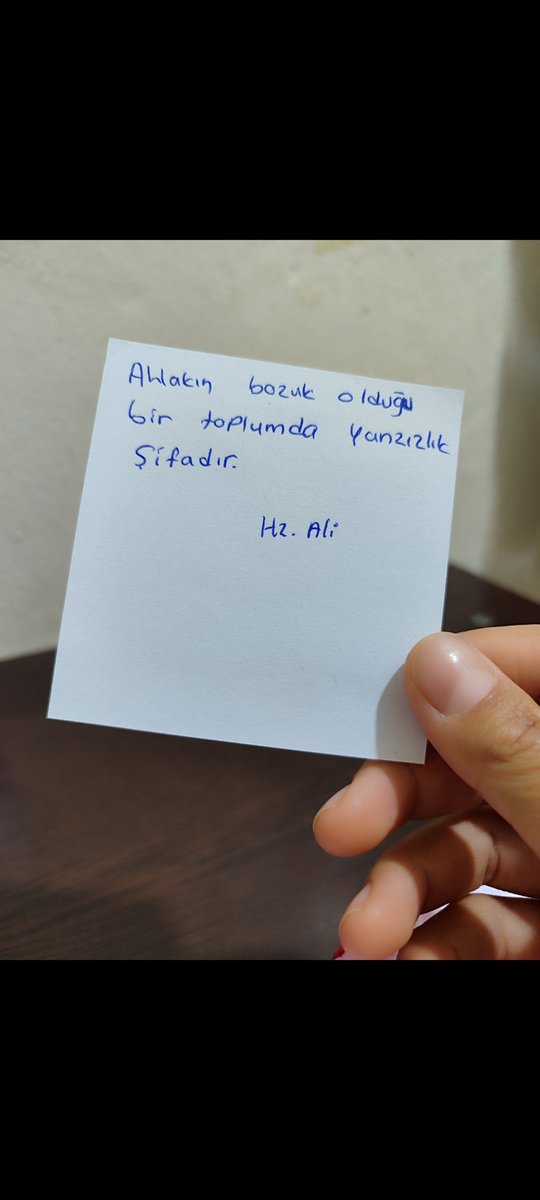 Ahlakın bozuk olduğu
bir toplumda yanzızlık
Şifadır.
Hz. Ali